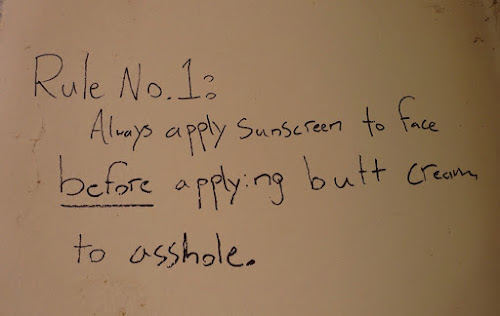 Rule No.1:
Always apply Sunscreen to face
before applying butt cream
to asshole.